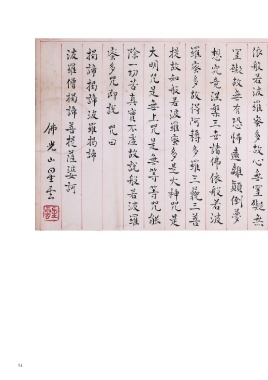 依般若波羅蜜多故心無罣礙無
罣礙故無有恐怖遠離顛倒夢
想究竟涅槃三世諸佛依般若波
羅蜜多故得阿耨多羅三藐三菩
提故知般若波羅蜜多是大神咒是
大明咒是無上咒是無等等咒能
除一切苦真實不虛故說般若波羅
蜜多咒即說咒曰
揭諦揭諦波羅揭諦
波羅僧揭諦菩提薩婆訶
佛光山星雲